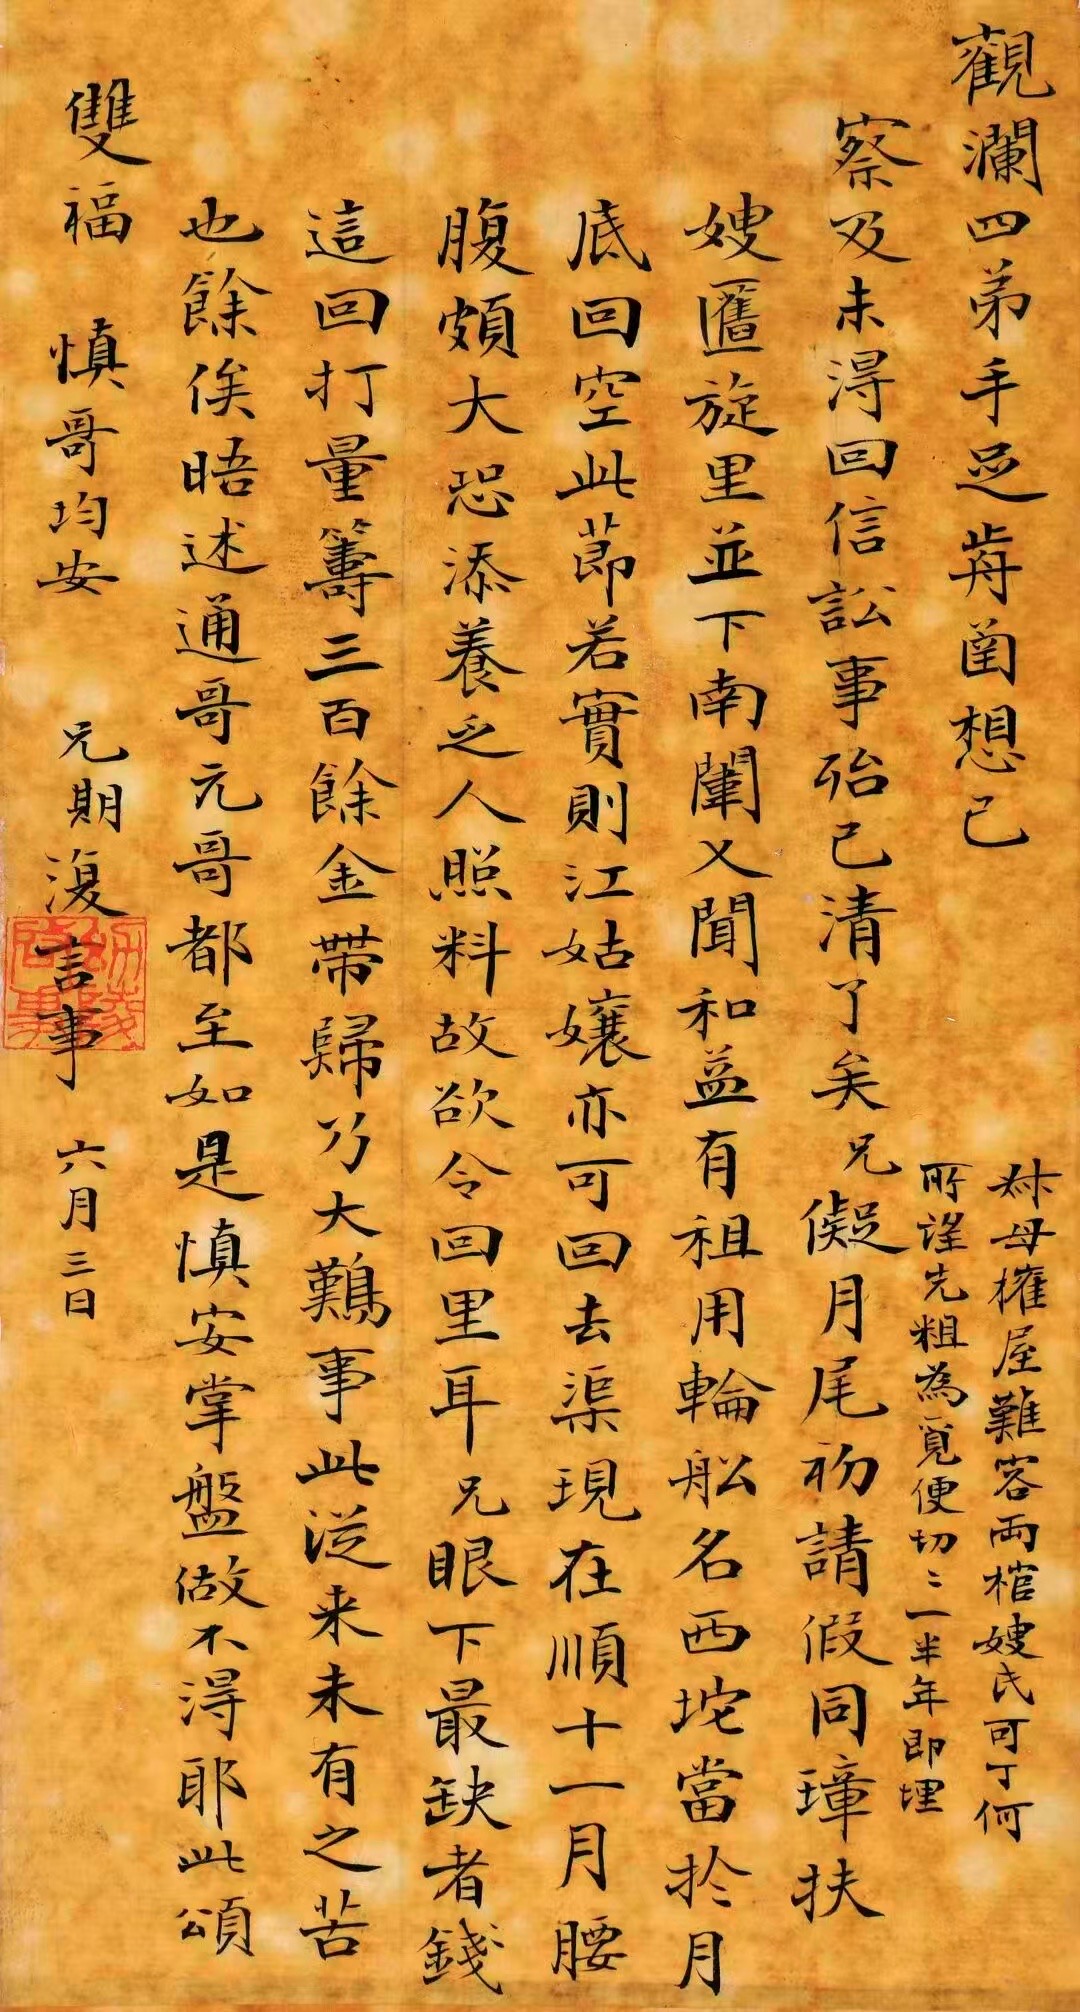 觀瀾四弟手足歬圅想已
察及未得回信訟事殆已清了矣兄儗月尾初請假同璋扶
嫂匶旋里並下南闈又聞和益有租用輪船名西坨當於月
底回空此節若實則江姑孃亦可回去渠現在順十一月腰
腹頗大恐添養乏人照料故欲令回里耳兄眼下最缺者錢
這回打量籌三百餘金帶歸乃大難事此從来未有之苦
也餘俟晤述通哥元哥都至如是慎安掌盤做不得耶此頌
雙福 慎哥均安 兄期復言事 六月三日
叔母欑屋難容兩棺嫂氏可丁何
所望先粗為覓便切〻一半年即埋